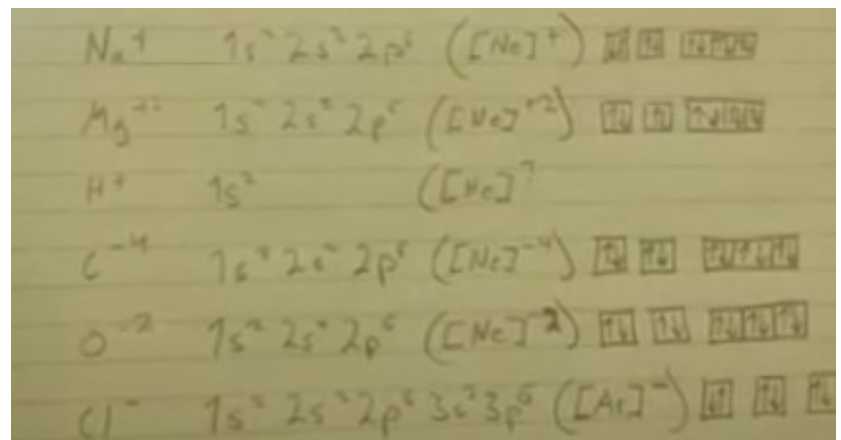 Na⁺ 1s² 2s² 2p⁶ ([Ne]⁺) ⇅ ⇅ ⇅⇅⇅
Mg⁺² 1s² 2s² 2p⁶ ([Ne]⁺²) ⇅ ⇅ ⇅⇅⇅
H⁺ 1s² ([He]
C⁻⁴ 1s² 2s² 2p⁶ ([Ne]⁻⁴) ⇅ ⇅ ⇅⇅⇅
O⁻² 1s² 2s² 2p⁶ ([Ne]⁻²) ⇅ ⇅ ⇅⇅⇅
Cl⁻ 1s² 2s² 2p⁶ 3s² 3p⁶ ([Ar]⁻) ⇅ ⇅